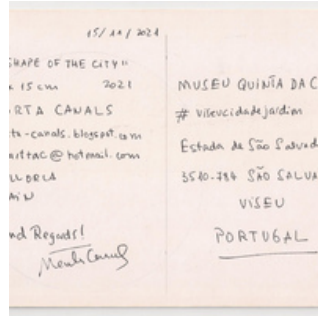 15/11/2021
SHAPE OF THE CITY"
15 cm 2021
RTA CANALS
ta-canals.blogspot.com
@hotmail.com
AIN
nd Regards!
MUSEU QUINTA DA C
# viseucidadejardim
Estrada de São Salvad
3510-784 SÃO SALVA
VISEU
PORTUGAL